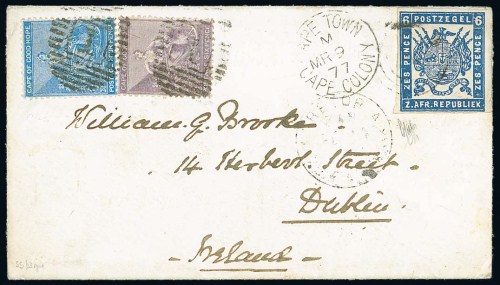 CAPE OF GOOD HOPE
CAPE TOWN
M
MR 9
77
CAPE COLONY
6 POSTZEGEL 6
ZES PENCE
ZES PENCE
Z. AFR. REPUBLIEK
William G. Brooke
14 Herbert Street
Dublin
Ireland